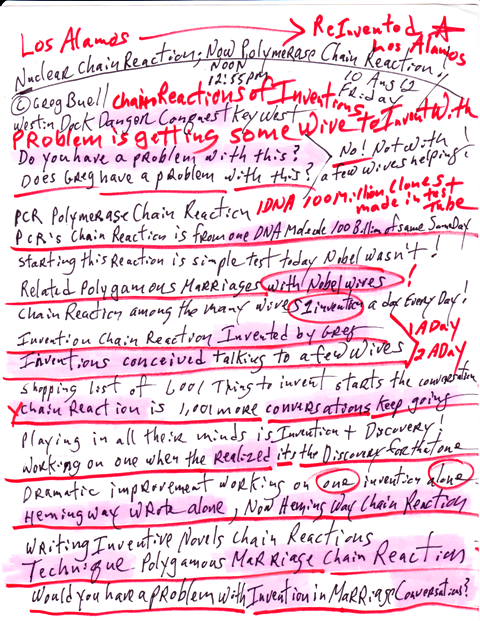 Los Alamos → ReInvented
Los Alamos
Nuclear Chain Reaction; Now Polymerase Chain Reaction!
NOON
12:55pm
10 Aug 12
Friday
© Greg Buell chain Reactions of Inventions
Westin Dock Danger Conquest Key West
PROBlem is getting some Wive to InventWith
Do you have a PROBlem with this? No! Not With
Does Greg have a problem with this? a few Wives helping!
PCR Polymerase Chain Reaction 1DNA 100 Million Clones + made in test Tube
PCR's Chain Reaction is from one DNA Molecule 100 Billion of same SomeDay
starting this Reaction is simple test today Nobel wasn't!
Related Polygamous Marriages with Nobel wives!
Chain Reaction among the many wives 1 invention a day Every Day!
Invention Chain Reaction Invented by Greg 1 A Day
Inventions conceived talking to a few Wives 2 A Day
shopping list of 1,001 Thing to invent starts the conversation
chain Reaction is 1,001 more conversations Keep going
Playing in all their minds is Invention + Discovery!
Working on one when the Realized its the Discovery for that one
Dramatic improvement working on one invention alone
Hemingway WRote alone, Now Hemingway Chain Reaction
WRiting Inventive Novels Chain Reactions
Technique Polygamous MaRRiage Chain Reaction
Would you have a PROBlem with Invention in MaRRiage Conversations?